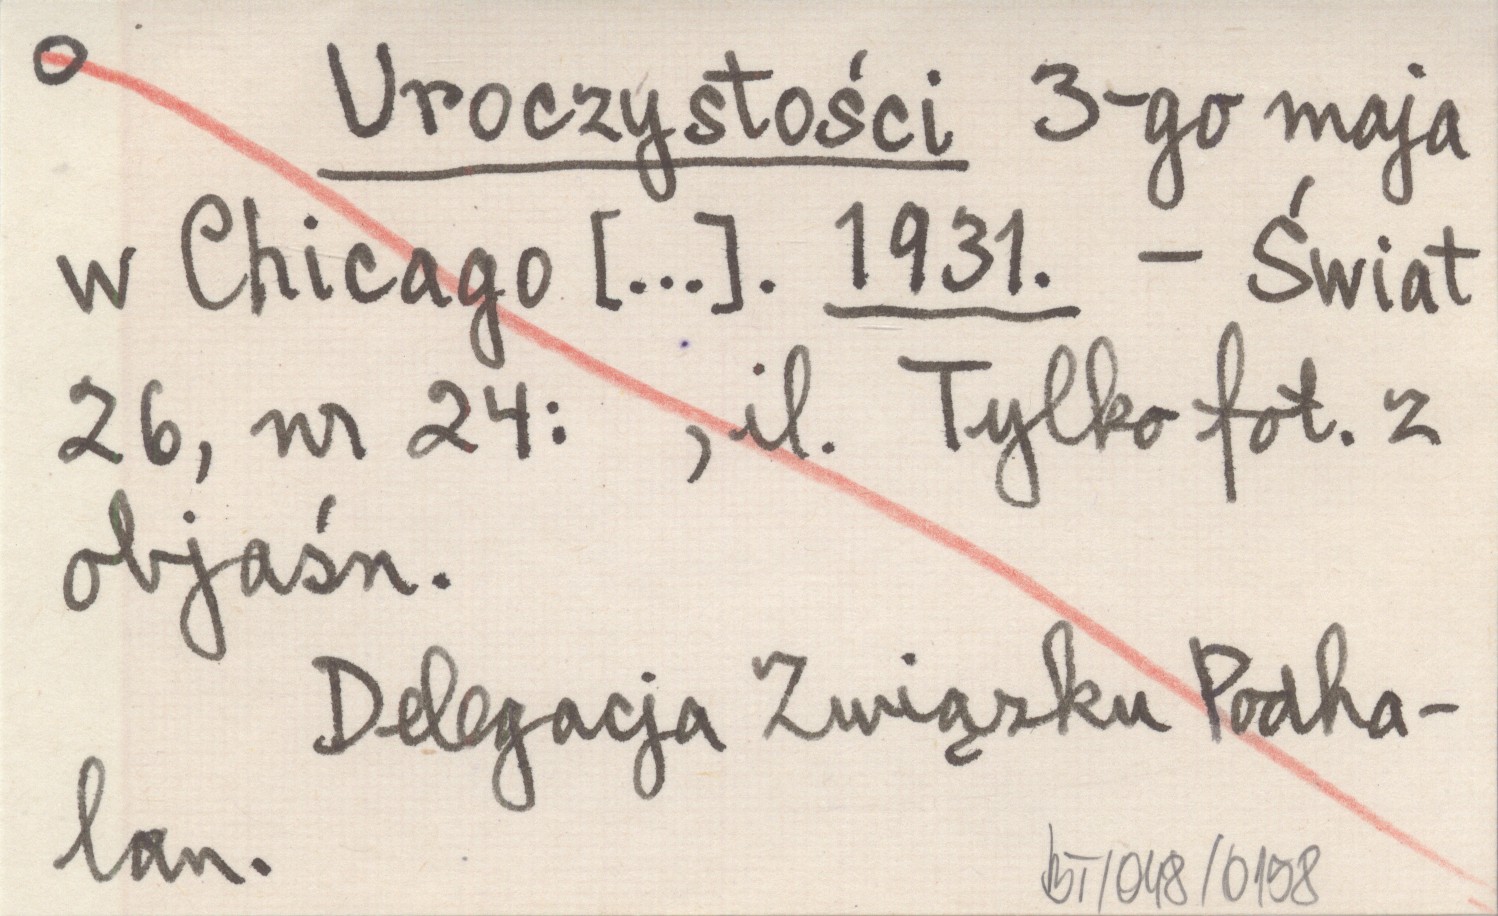 Uroczystości 3-go maja
w Chicago [...]. 1931. - Świat
26, nr 24: , il. Tylko fot. z
objaśn.
Delegacja Związku Podha-
lan.
BT/048/0158